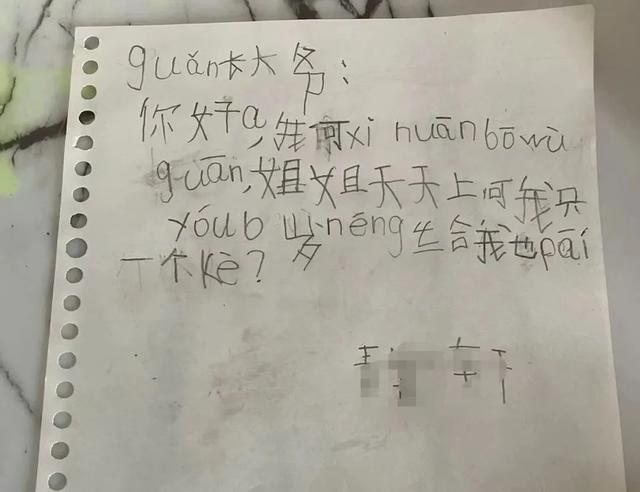 guǎn长大爷：
你好a,我可xi huānbōwù
guān,姐姐天天上何我只
yóu6岁néng生给我也pāi
一个kè?
王